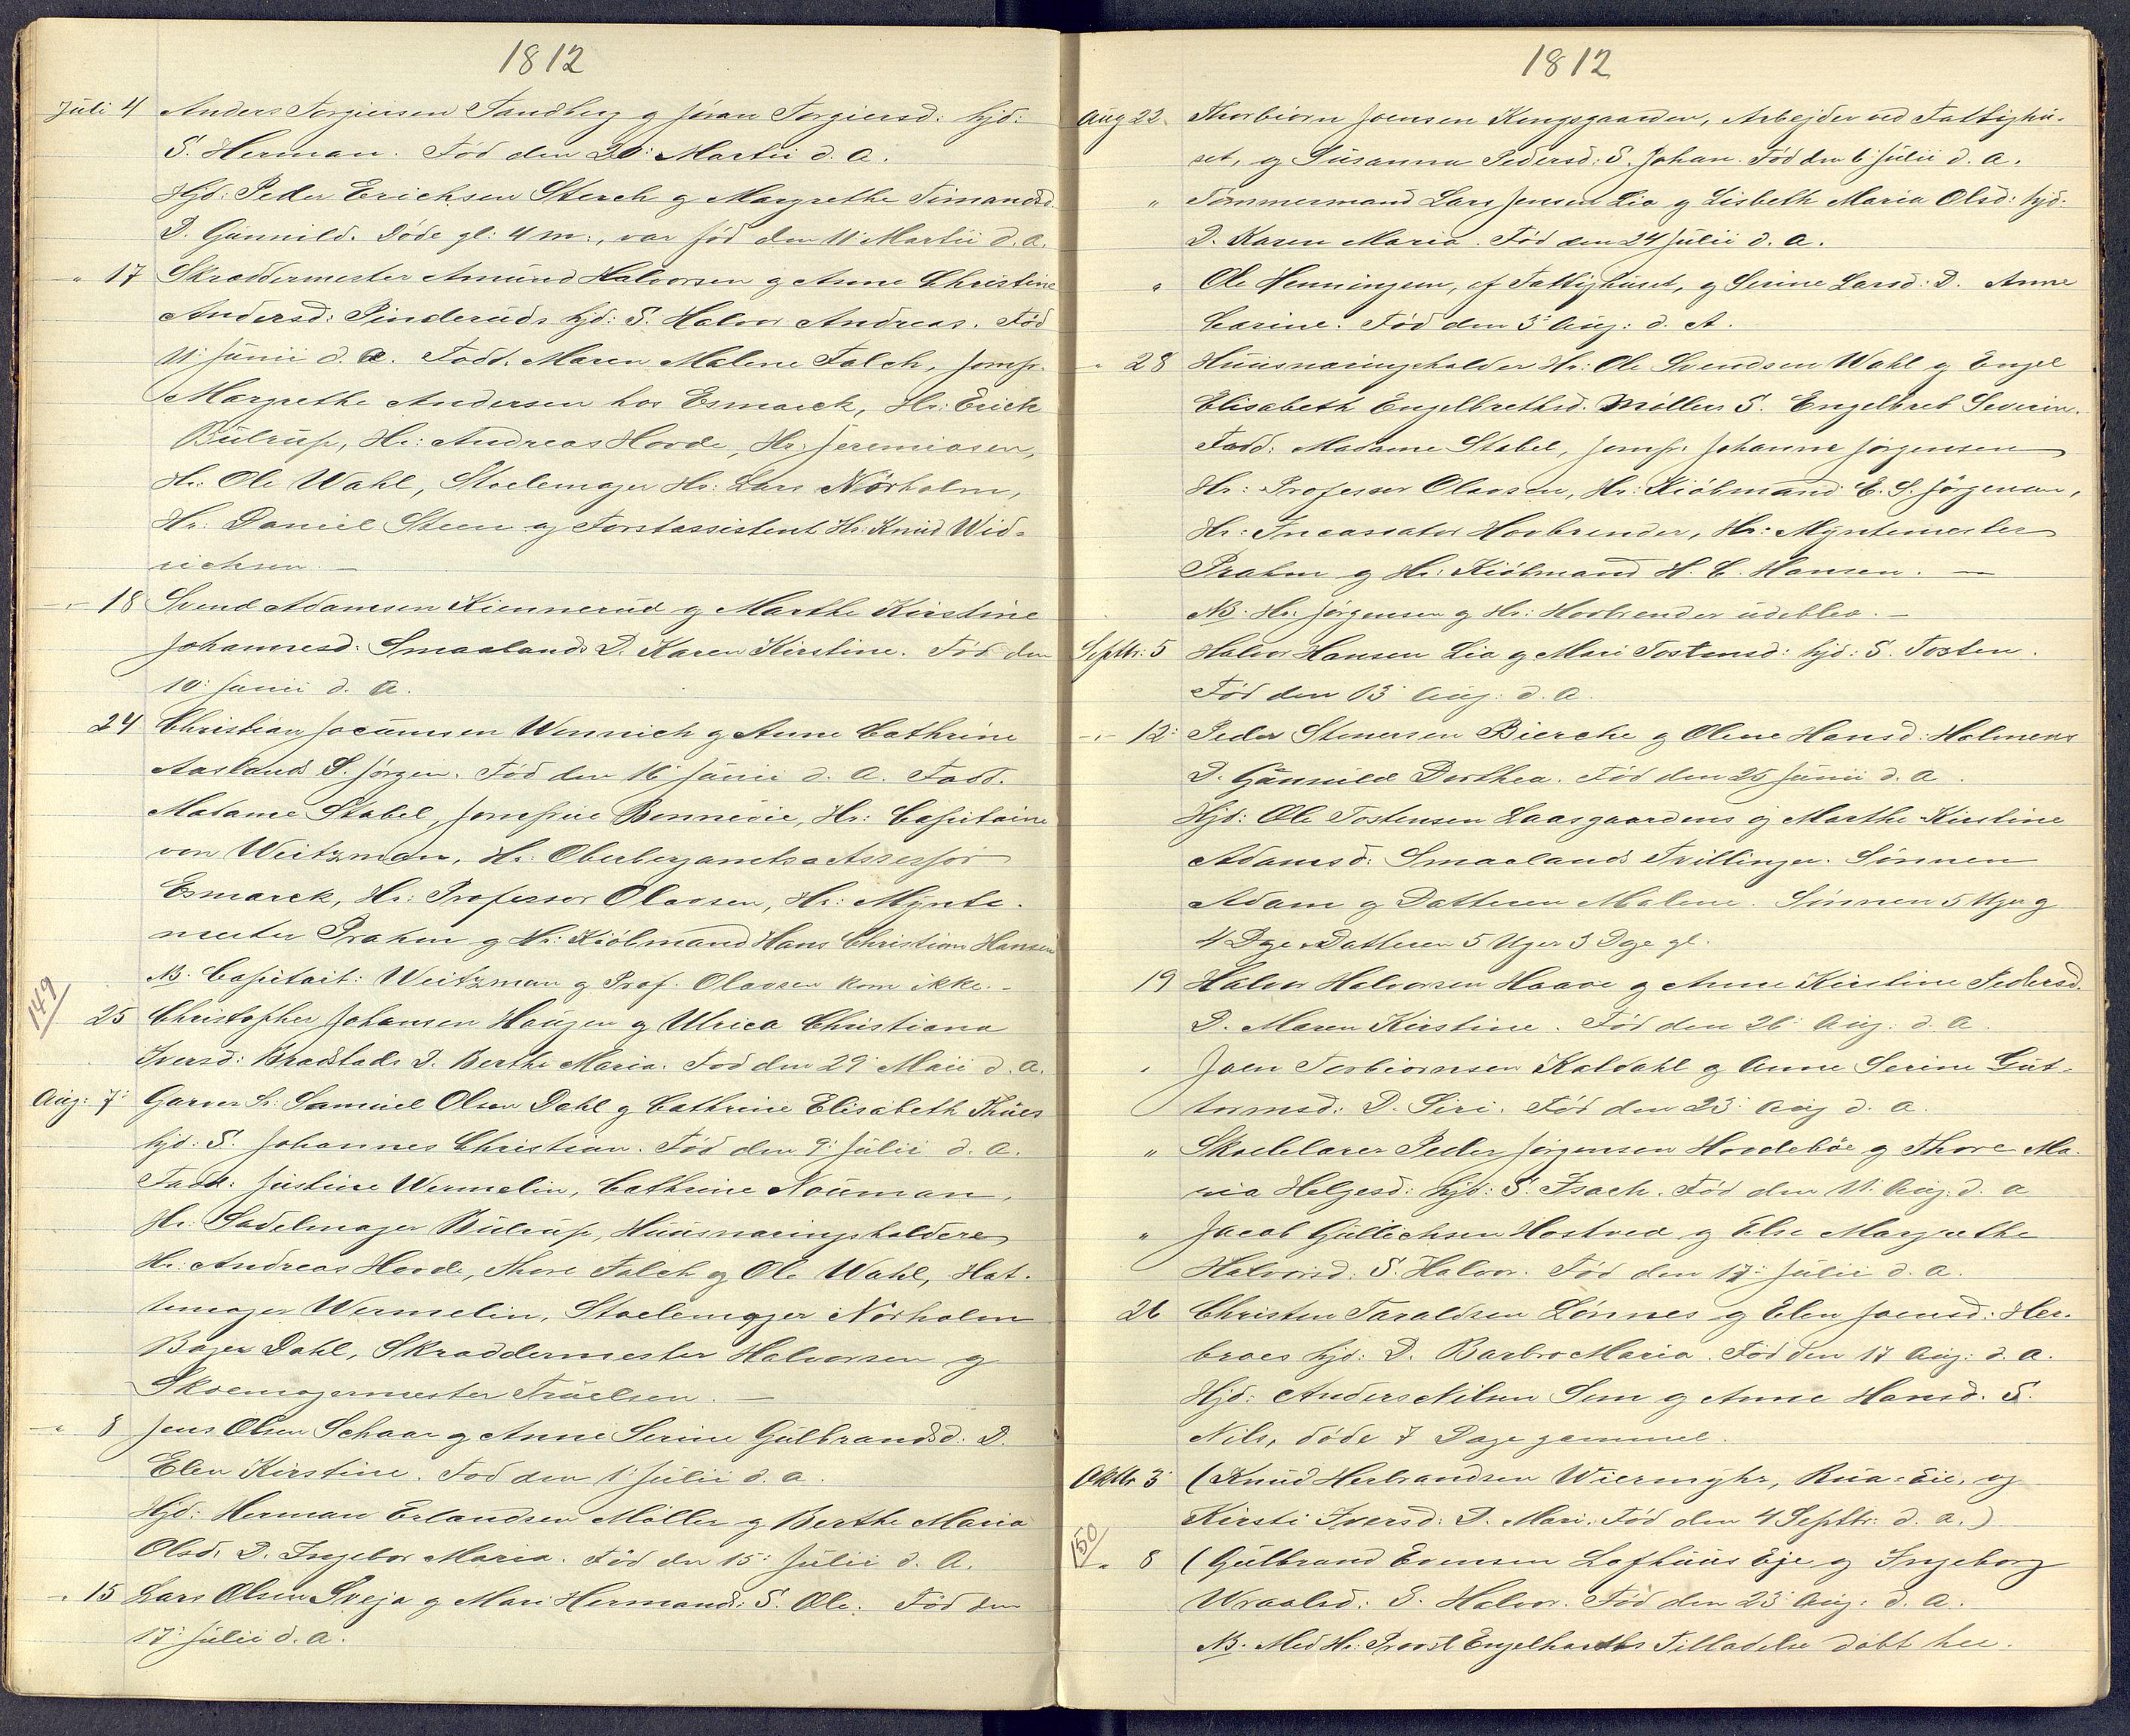 1812
Juli 4 Anders Torgiersen Sandberg og Jöran Torgiersd: hjd:
S. Herman. Fód den 20: Martii d. a.
Hjd: Peder Erichsen Sterch og Margrethe Simonsd.
D. Gunnild. Döde gl: 4 m:, var fód den 11: Martii d. a.
" 17 Skræddermester Amund Halvorsen og Anne Christine
Andersd: Pinderuds hjd: S. Halvor Andreas. Fód
11: Junii d. a. Fadd. Maren Malene Falch, Jomfr.
Margrethe Andersen hos Esmarck, Hr: Erich
Bülrup, Hr: Andreas Hovde, Hr: Jeremiasen,
Hr: Ole Wahl, Stolemager Hr: Lars Nörholm,
Hr: Daniel Steen og Forstassistent Hr: Knud Wid-
richsen. —
-"- 18 Svend Adamsen Kiennerud og Marthe Kirstine
Johannesd: Smaalands D. Karen Kirstine. Fód den
10: Junii d. a.
24 Christian Jocumsen Wennich og Anne Cathrine
Aaslands S. Jörgen. Fód den 16: Junii d. a. Fadd.
Madame Stabel, Jomfrue Bonnevie, Hr: Capitaine
von Weitzman, Hr: Oberbergamtsassessor
Esmarck, Hr: Professor Olavsen, Hr: Mÿnte-
mester Prahm og Hr: Kiöbmand Hans Christian Hansen
NB. Capitait: Weitzman og Prof. Olavsen kom ikke. -
149
25 Christopher Johansen Haugen og Ulrica Christiana
Iversd: Bradstads D. Berthe Maria. Fód den 29: Maii d. a.
Aug: 7: Garver Sr. Samuel Olsen Dahl og Cathrine Elisabeth Thües
hjd: S. Johannes Christian. Fód den 9: Julii d. a.
Fadd: Justine Wermelin, Cathrine Nouman,
Hr: Sadelmager Bülrup, Huusnaringsholdere
Hr: Andreas Hovde, Thore Falch og Ole Wahl, Hat-
temager Wermelin, Stoelemager Nörholm
Bager Dahl, Skræddermester Halvorsen og
Skoemagermester Truelsen. —
-"- 8 Jens Olsen Schaar og Anne Serine Gulbrandsd. D.
Elen Kirstine. Fód den 1: Julii d. a.
Hjd: Herman Erlandsen Möller og Berthe Maria
Olsd. D. Ingebor Maria. Fód den 15: Julii d. a.
-"- 15 Lars Olsen Sveja og Mari Hermands: S. Ole. Fód den
17: Julii d. a.
1812
Aug 22. Thorbiörn Joensen Kongsgaarden, Arbejder ved Fattighu-
set, og Susanna Pedersd: S. Johan. Fód den 6: Julii d. a.
" Tömmermand Lars Jensen Lia og Lisbeth Maria Olsd: hjd:
D. Karen Maria. Fód den 24 Julii d. a.
" Ole Henningsen, af Fattighuset, og Serine Larsd: D. Anne
Carine. Fód den 3: Aug: d. A.
-"- 28 Huusnaringsholder Hr: Ole Svendsen Wahl og Engel
Elisabeth Engelbrethsd. Möllers S. Engelbret Severin.
Fadd: Madame Stabel, Jomfr: Johanne Jörgensen
Hr: Professor Olavsen, Hr: Kiöbmand E. S. Jörgensen,
Hr: Incassator Hovbrender, Hr: Mÿntemester
Prahm og Hr: Kiöbmand H. C. Hansen. —
NB. Hr: Jörgensen og Hr: Hovbrender udeblev. —
Septbr: 5 Halvor Hansen Lia og Mari Tostensd: hjd: S. Tosten.
Fód den 13: Aug: d. a.
-"- 12: Peder Stenersen Bierche og Olene Hansd: Holmens
D. Gunnild Dorthea. Fód den 25 Junii d. a.
Hjd: Ole Tostensen Laasgaardens og Marthe Kirstine
Adamsd: Smaalands Tvillinger. Sönnen
Adam og Datteren Malene. Sönnen 5 Uger og
4 Dage Datteren 5 Uger 3 Dage gl.
19 Halvor Halvorsen Haave og Anne Kirstine Pedersd.
D. Maren Kirstine. Fód den 26: Aug: d. a.
" Joen Torbiörnsen Kaldahl og Anne Serine Gut-
tormsd: D. Siri. Fód den 23: Aug d. a.
" Skoelelærer Peder Jörgensen Hovdeböe og Thore Ma-
ria Helgesd: hjd: S. Isach. Fód den 11: Aug: d. a
" Jacob Gullichsen Hostved og Else Margrethe
Halvorsd: S. Halvor. Fód den 17: Julii d. a.
26 Christen Taraldsen Lönnes og Elen Joensd: Her-
broes hjd: D. Barbro Maria. Fód den 17 Aug: d. a.
Hjd: Anders Nilsen Sem og Anne Hansd. S.
Nils, döde 7 Dage gammel.
Oktbr 3: (Knud Herbrandsen Wiermÿhr, Rua-Eie, og
Kirsti Iversd: D. Mari. Fód den 4 Septbr: d. a.)
150
" 8 (Gulbrand Evensen Lofthuus Eje og Ingeborg
Wraalsd: S. Halvor. Fód den 23: Aug: d. a.
NB. Med Hr: Provst Engelharths Tilladelse döbt her.